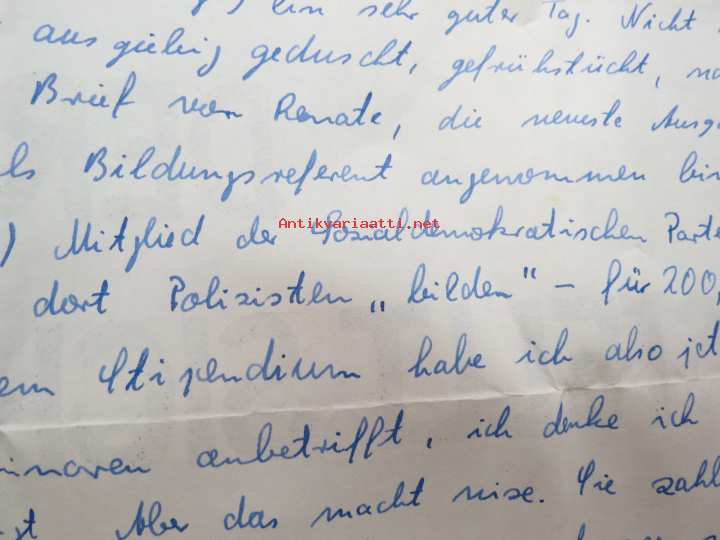 ein sehr guter Tag. Nicht
ausgiebig geduscht, gefrühstückt,
Brief von Renate, die neueste Ausg
ls Bildungsreferent angenommen bin
Antikvariaatti.net
) Mitglied der Sozialdemokratischen Parte
dort Polizisten „bilden" – für 200,
em Stipendium habe ich also jet
inaren anbetrifft, ich denke ich
Aber das macht nixe. Sie zahl